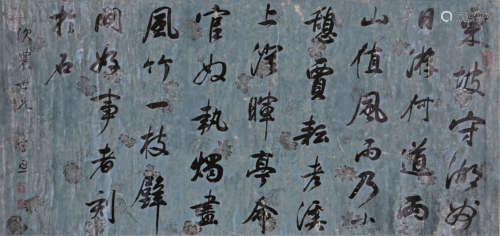 東坡守湖州
日游何道兩
山值風雨乃小
憩賈耘老溪
上澄暉亭命
官奴執燭畫
風竹一枝壁
間好事者刻
於石